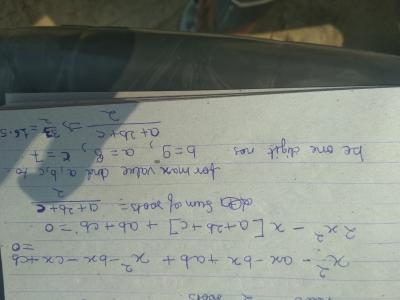 x² - ax - bx + ab + x² - bx - cx + cb
= 0
2x² - x [a+2b+c] + ab + cb = 0
Sum of roots = a+2b+c / 2
for max value and a, b, c to
be one digit nos
b=9, a=8, c=7
a+2b+c / 2 ⇒ 33/2 = 16.5